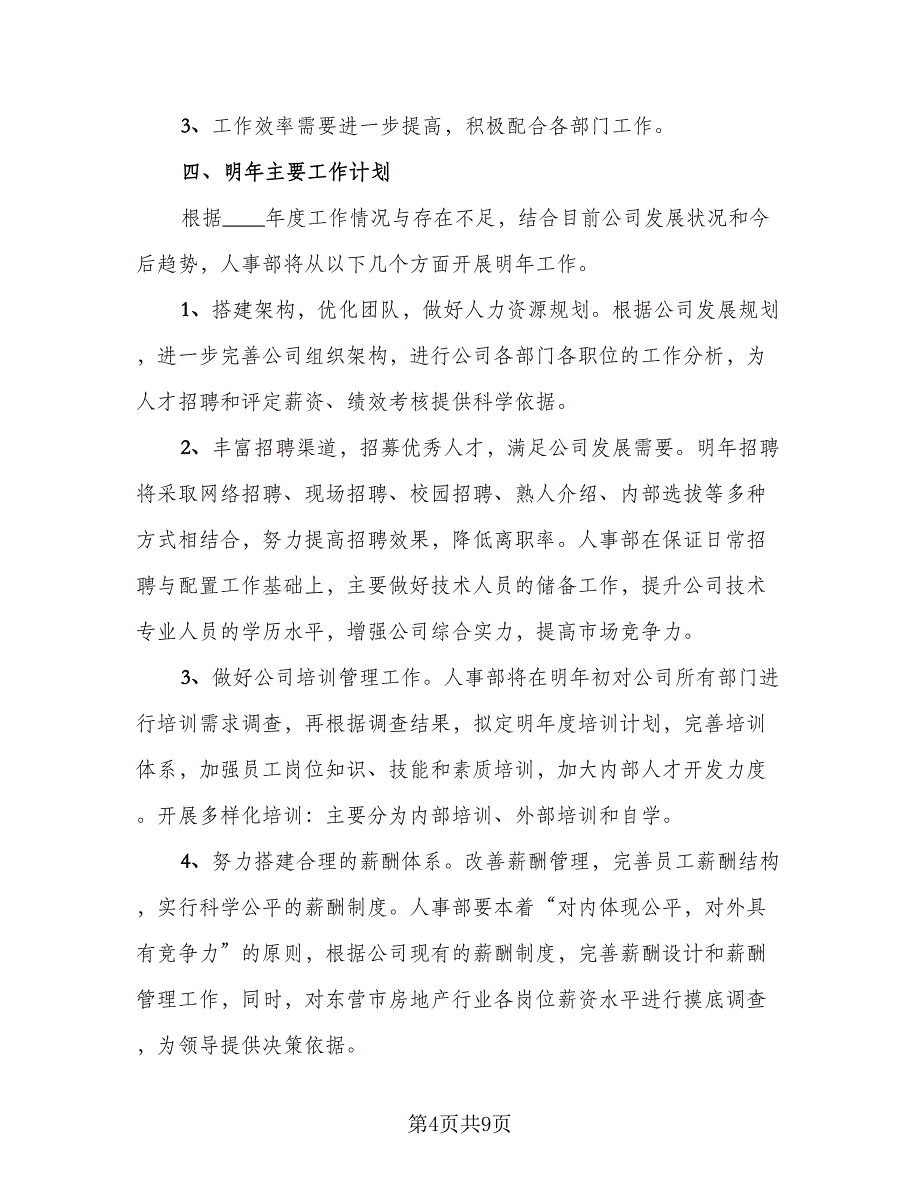 3、工作效率需要进一步提高，积极配合各部门工作。
四、明年主要工作计划
根据____年度工作情况与存在不足，结合目前公司发展状况和今
后趋势，人事部将从以下几个方面开展明年工作。
1、搭建架构，优化团队，做好人力资源规划。根据公司发展规划
，进一步完善公司组织架构，进行公司各部门各职位的工作分析，为
人才招聘和评定薪资、绩效考核提供科学依据。
2、丰富招聘渠道，招募优秀人才，满足公司发展需要。明年招聘
将采取网络招聘、现场招聘、校园招聘、熟人介绍、内部选拔等多种
方式相结合，努力提高招聘效果，降低离职率。人事部在保证日常招
聘与配置工作基础上，主要做好技术人员的储备工作，提升公司技术
专业人员的学历水平，增强公司综合实力，提高市场竞争力。
3、做好公司培训管理工作。人事部将在明年初对公司所有部门进
行培训需求调查，再根据调查结果，拟定明年度培训计划，完善培训
体系，加强员工岗位知识、技能和素质培训，加大内部人才开发力度
。开展多样化培训：主要分为内部培训、外部培训和自学。
4、努力搭建合理的薪酬体系。改善薪酬管理，完善员工薪酬结构
，实行科学公平的薪酬制度。人事部要本着“对内体现公平，对外具
有竞争力”的原则，根据公司现有的薪酬制度，完善薪酬设计和薪酬
管理工作，同时，对东营市房地产行业各岗位薪资水平进行摸底调查
，为领导提供决策依据。
第4页共9页